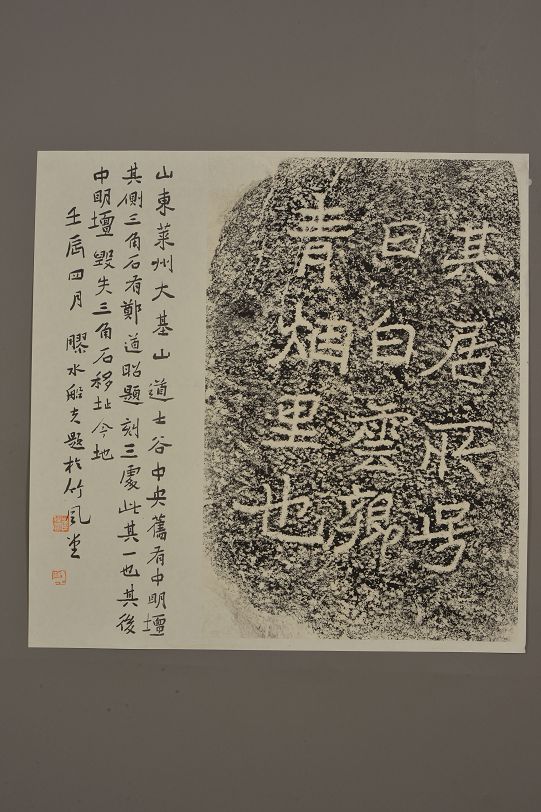 其居所号
曰白雲鄉
青烟里也
山東萊州大基山道士谷中央舊有中明壇
其側三角石有鄭道昭題刻三處此其一也其後
中明壇毀失三角石移址今地
壬辰四月膠水船夫題於竹風堂